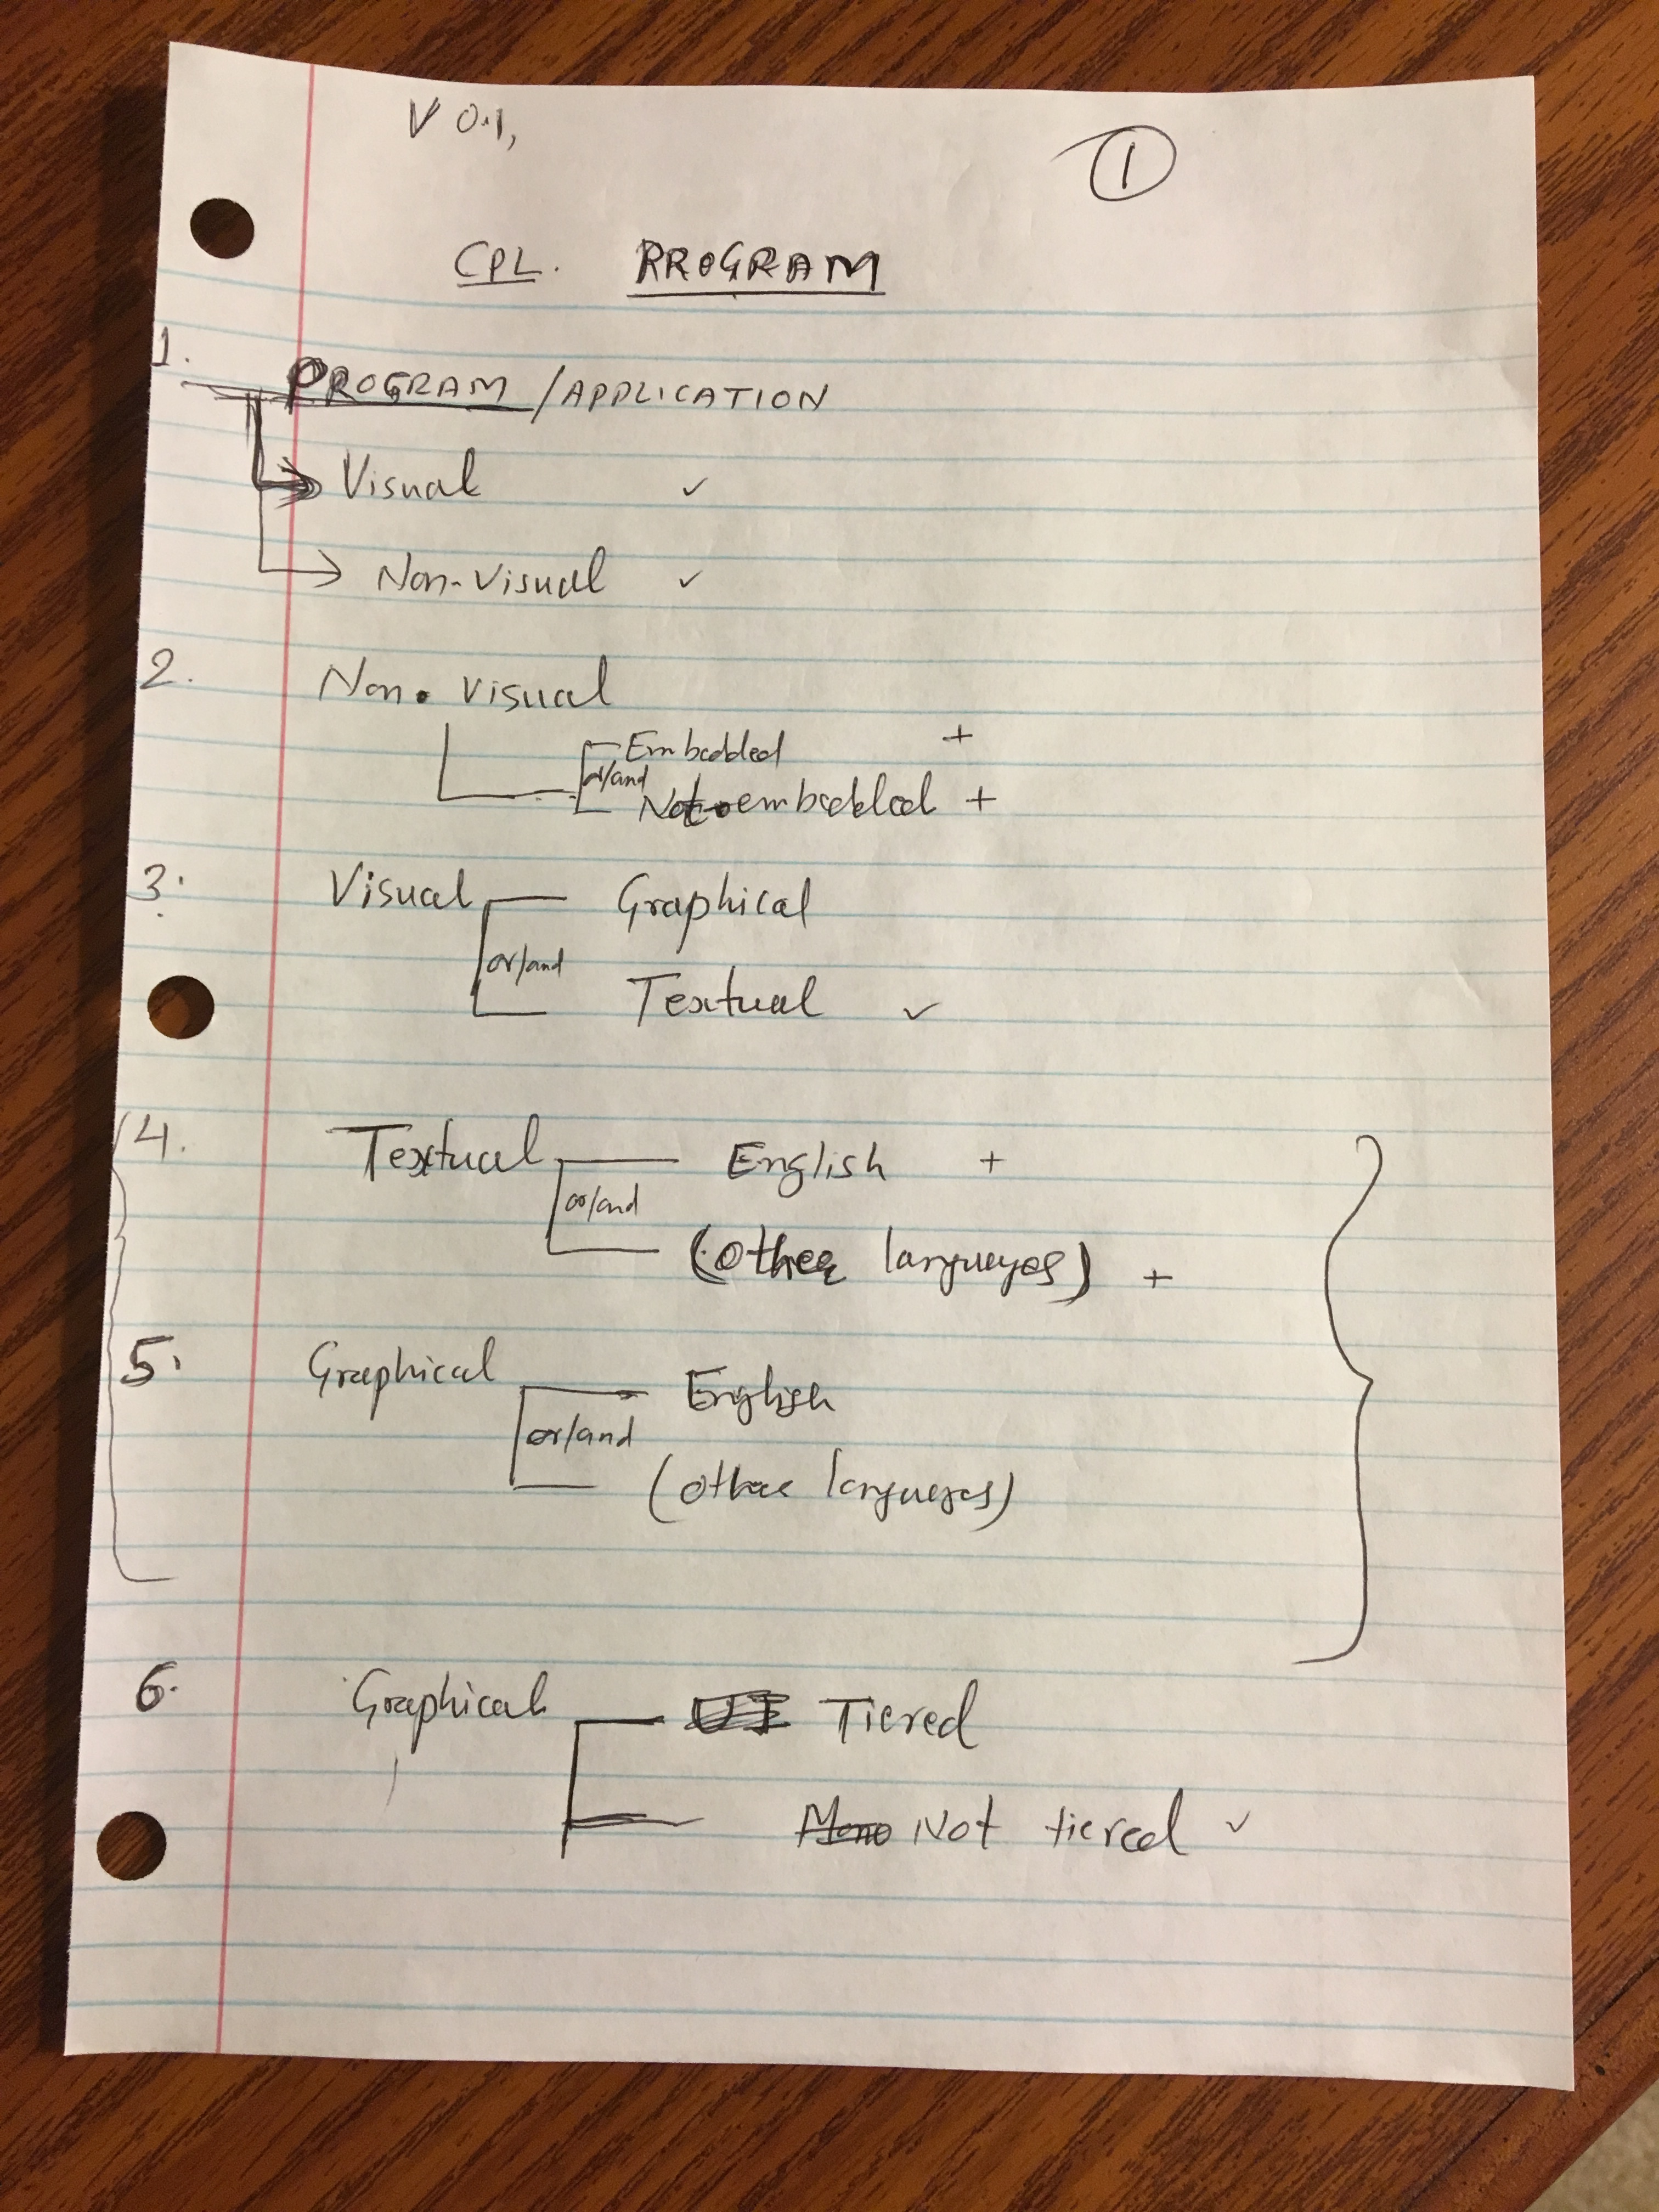 V 0.1,
1
CPL. PROGRAM
1.
PROGRAM / APPLICATION
Visual ✓
Non-Visual ✓
2. Non-Visual
Embedded +
or/and
Not-embedded +
3. Visual Graphical
or/and
Textual ✓
4. Textual English +
or/and
(other languages) +
5. Graphical English
or/and
(other languages)
6. Graphical UI Tiered
Mono Not tiered ✓